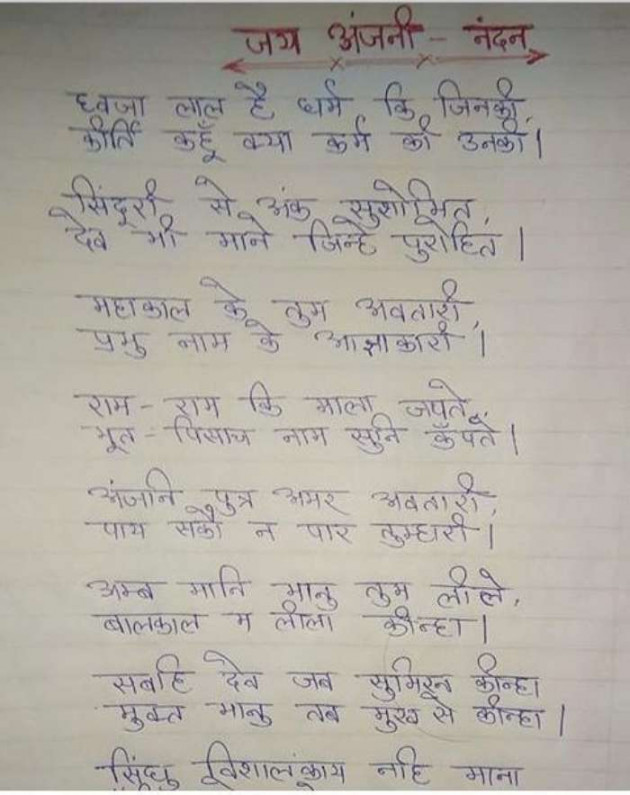 जय अंजनी - नंदन
ध्वजा लाल है धर्म कि जिनकी,
कीर्ति कहूँ क्या कर्म की उनकी।
सिंदूरी से अंक सुशोभित,
देव भी माने जिन्हे पुरोहित।
महाकाल के तुम अवतारी,
प्रभु नाम के आज्ञाकारी।
राम - राम कि माला जपते,
भूत - पिसाच नाम सुनि कँपते।
अंजनि पुत्र अमर अवतारी,
पाय सको न पार तुम्हारी।
अम्ब मानि भानु तुम लीले,
बालकाल म लीला कीन्हा।
सबहि देव जब सुमिरन कीन्हा
मुक्त भानु तब मुख से कीन्हा।
सिंधु विशालंकाय नहि माना